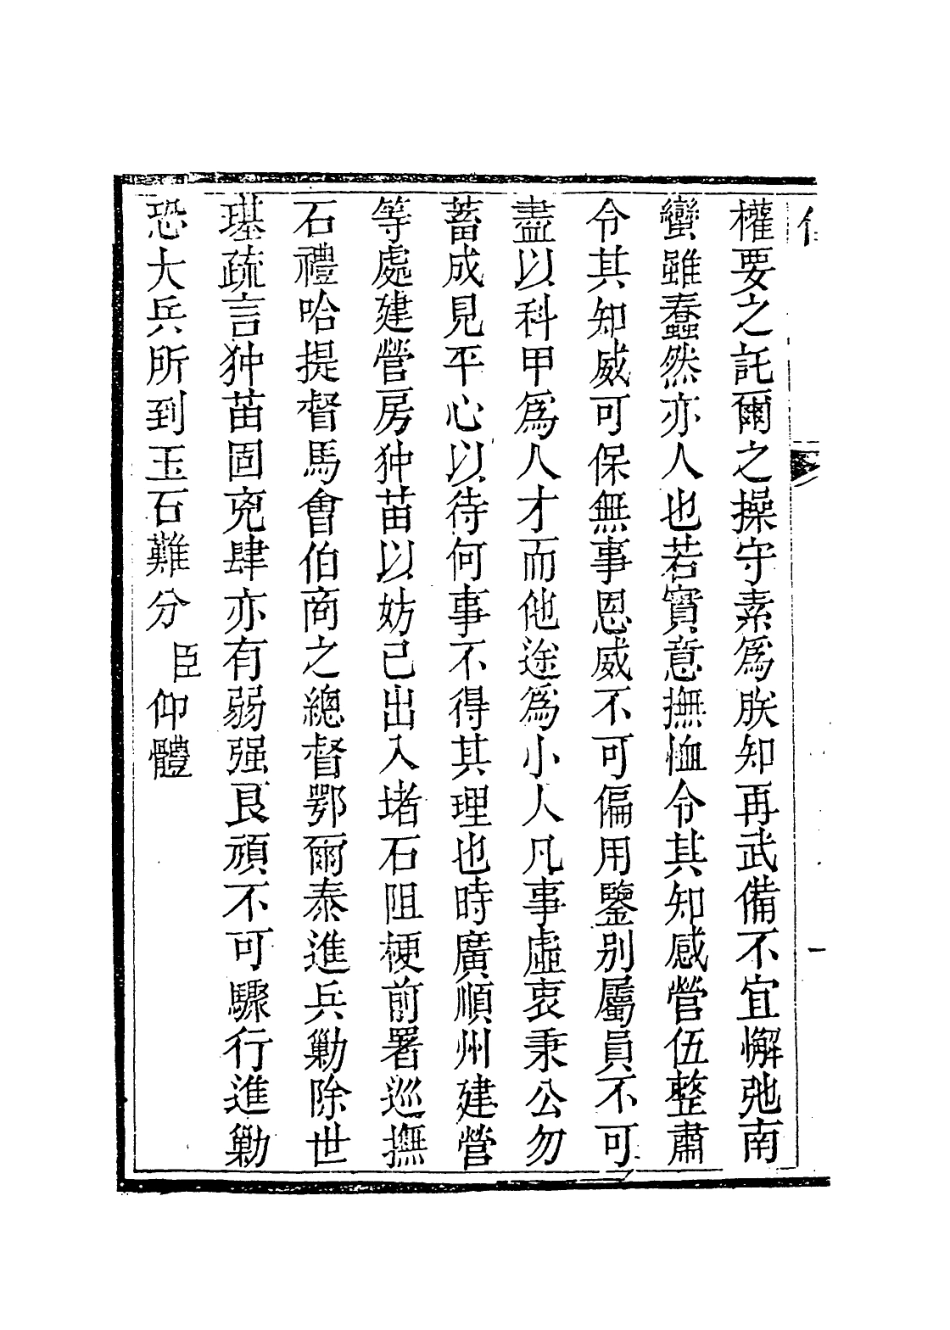 權要之託爾之操守素爲朕知再武備不宜懈弛南
蠻雖蠢然亦人也若實意撫恤令其知感營伍整肅
令其知威可保無事恩威不可偏用鑒别屬員不可
盡以科甲爲人才而他途爲小人凡事虛衷秉公勿
蓄成見平心以待何事不得其理也時廣順州建營
等處建營房狆苗以妨己出入堵石阻梗前署巡撫
石禮哈提督馬會伯商之總督鄂爾泰進兵勦除世
璂疏言狆苗固兇肆亦有弱强良頑不可驟行進勦
恐大兵所到玉石難分臣仰體